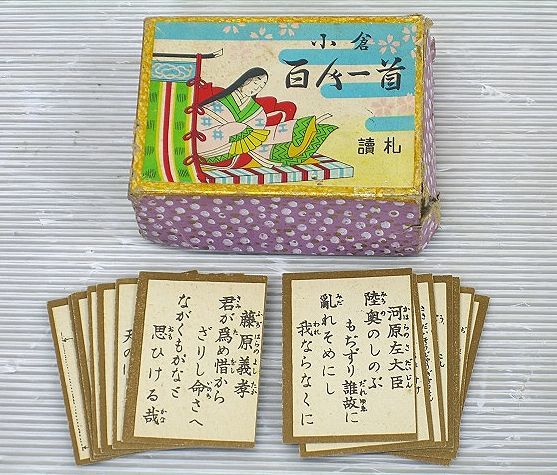 小倉
百人一首
讀札
河原左大臣
陸奥のしのぶ
もぢずり誰故に
亂れそめにし
我ならなくに
藤原義孝
君が爲め惜から
ざりし命さへ
ながくもがなと
思ひける哉
天の